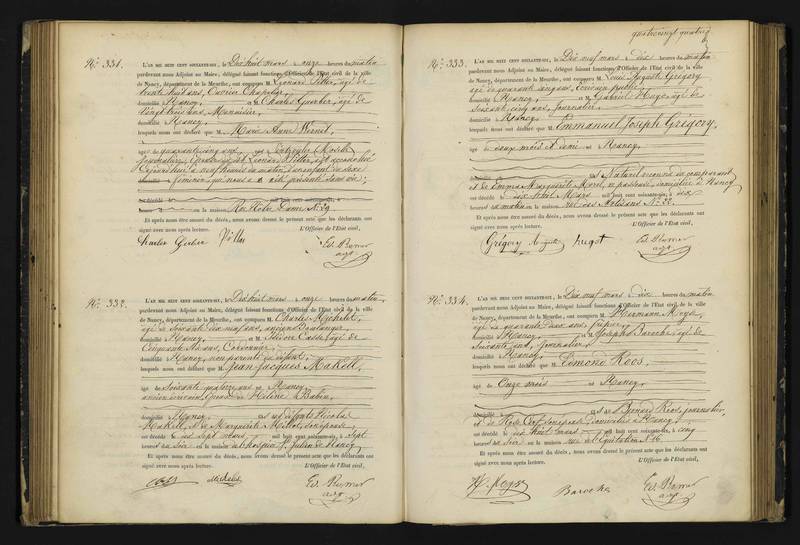 N° 331.
L'AN MIL HUIT CENT SOIXANTE-SIX, le Dix huit mars à onze heures du matin
pardevant nous Adjoint au Maire, délégué faisant fonctions d'Officier de l'Etat civil de la ville
de Nancy, département de la Meurthe, ont comparu M. Léonard Pitter, âgé de
trente huit ans, Ouvrier Chapelier,
domicilié à Nancy, et Charles Guerber, âgé de
vingt huit ans, Menuisier,
domicilié à Nancy,
lesquels nous ont déclaré que M. Marie Anne Wernet,
âgée de quarante cinq ans, née
journalière, épouse de Léonard Pitter, est accouchée
aujourd'hui à neuf heures du matin, d'un enfant du sexe
féminin qui nous a été présenté sans vie;
en la maison Rue Notre Dame N° 29
Et après nous être assuré du décès, nous avons dressé le présent acte que les déclarants ont
signé avec nous après lecture. L'Officier de l'Etat civil,
Charles Guerber Pitter
N° 332.
L'AN MIL HUIT CENT SOIXANTE-SIX, le Dix huit mars à onze heures du matin,
pardevant nous Adjoint au Maire, délégué faisant fonctions d'Officier de l'Etat civil de la ville
de Nancy, département de la Meurthe, ont comparu M. Charles Michelet,
âgé de soixante dix neuf ans, ancien boulanger,
domicilié à Nancy, et M. Isidore Casse, âgé de
Cinquante ans, Cordonnier,
domicilié à Nancy, non parents du défunt,
lesquels nous ont déclaré que M. Jean-Jacques Makell,
âgé de Soixante quatre ans né à Nancy
ancien écrivain, époux de Hélène Babin,
domicilié à Nancy, et fils des défunts Nicolas
Makell, et de Marguerite Millot, son épouse,
est décédé le dix sept mars mil huit cent soixante-six, à sept
heures du soir en la maison à l'hospice St. Julien de Nancy
Et après nous être assuré du décès, nous avons dressé le présent acte que les déclarants ont
signé avec nous après lecture. L'Officier de l'Etat civil,
Cass Michelet
quatrevingt quatrième
N° 333.
L'AN MIL HUIT CENT SOIXANTE-SIX, le Dix neuf mars à dix heures du matin
pardevant nous Adjoint au Maire, délégué faisant fonctions d'Officier de l'Etat civil de la ville
de Nancy, département de la Meurthe, ont comparu M. Louis Auguste Grégory
âgé de quarante cinq ans, écrivain public,
domicilié à Nancy, et M. Gabriel Hugo, âgé de
soixante cinq ans, journalier,
domicilié à Nancy,
lesquels nous ont déclaré que M. Emmanuel Joseph Grégory,
âgé de deux mois et demi né à Nancy,
domicilié à et Naturel reconnu du comparant
et de Emma Marguerite Morel, domiciliée à Nancy
est décédé le dix huit Mars mil huit cent soixante-six, à dix
heures du matin en la maison rue des Artisans N° 22.
Et après nous être assuré du décès, nous avons dressé le présent acte que les déclarants ont
signé avec nous après lecture. L'Officier de l'Etat civil,
Grégory Auguste hugot
N° 334.
L'AN MIL HUIT CENT SOIXANTE-SIX, le Dix neuf mars à dix heures du matin
pardevant nous Adjoint au Maire, délégué faisant fonctions d'Officier de l'Etat civil de la ville
de Nancy, département de la Meurthe, ont comparu M. Hermann Meyer,
âgé de quarante deux ans, fripier,
domicilié à Nancy, et M. Joseph Baroche, âgé de
Soixante ans, journalier,
domicilié à Nancy,
lesquels nous ont déclaré que M. Edmond Koos,
âgé de Onze mois né à Nancy,
domicilié à et fils de Bernard Koos, journalier,
et de Rose Cerf, son épouse, domiciliés à Nancy,
est décédé le dix huit courant mil huit cent soixante-six, à cinq
heures du soir en la maison rue de l'Equitation N° 16.
Et après nous être assuré du décès, nous avons dressé le présent acte que les déclarants ont
signé avec nous après lecture. L'Officier de l'Etat civil,
H. Meyer Baroche